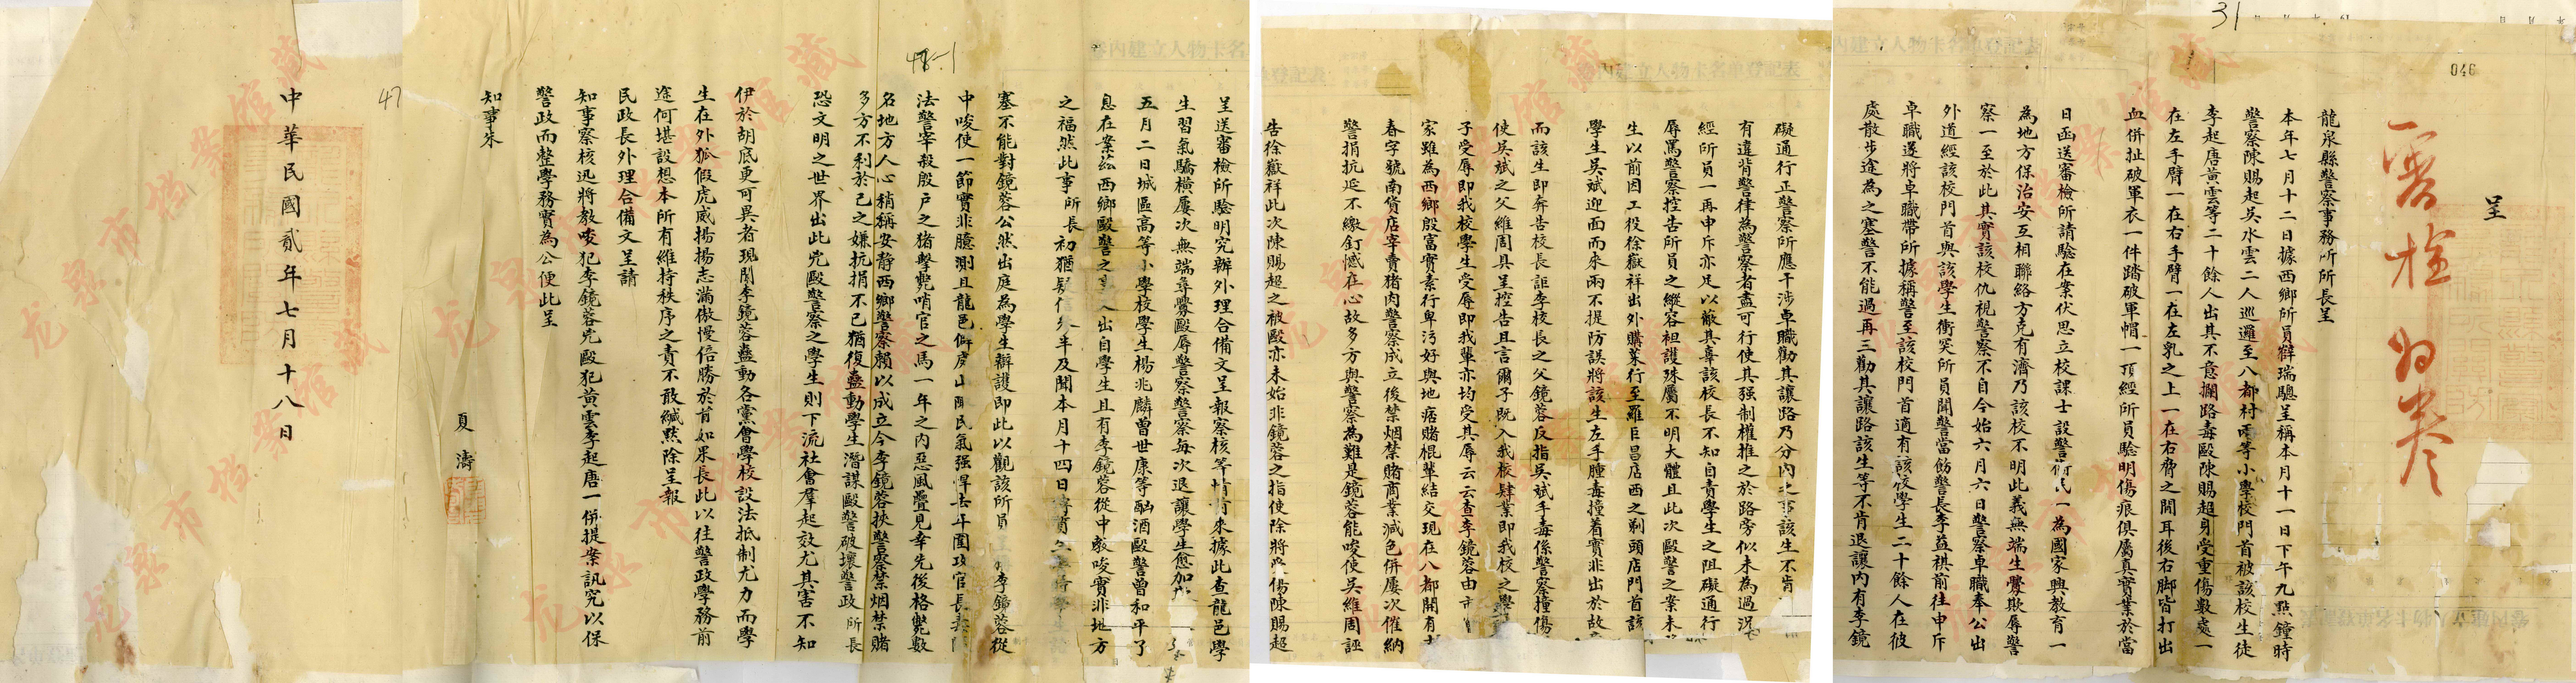 046
31
呈
龍泉縣警察事務所所長呈
本年七月十二日據西鄉所員辭瑞驄呈稱本月十一日下午九點鐘時
警察陳賜起吳水雲二人巡邏至八都村兩等小學校門首被該校生徒
李起唐黃雲等二十餘人出其不意攔路毒毆陳賜超身受重傷數處一
在左手臂一在右手臂一在左乳之上一在右脅之間耳後右脚皆打出
血併扯破軍衣一件踏破軍帽一頂經所員驗明傷痕俱屬真實業於當
日函送審檢所請驗在案伏思立校課士設警衛民一為國家興教育一
為地方保治安互相聯絡方克有濟乃該校不明此義無端生釁欺辱警
察一至於此其實該校仇視警察不自今始六月六日警察卓職奉公出
外道經該校門首與該學生衝突所員聞警當飭警長李益祺前往申斥
卓職遂將卓職帶所據稱警至該校門首適有該校學生二十餘人在彼
處散步途為之塞警不能過再三勸其讓路該生等不肯退讓內有李鏡
礙通行正警察所應干涉卓職勸其讓路乃分內之事該生不肯
有違背警律為警察者盡可行使其强制權推之於路旁似未為過況
經所員一再申斥亦足以蔽其辜該校長不知自責學生之阻礙通行
辱罵警察控告所員之縱容袒護殊屬不明大體且此次毆警之案未
生以前因工役徐嶽祥出外購菜行至羅巨昌店西之剃頭店門首該
學生吳斌迎面而來兩不提防誤將該生左手腫毒撞着實非出於故
而該生即奔告校長詎李校長之父鏡蓉反指吳斌手毒係警察撞傷
使吳斌之父維周具呈控告且言爾子既入我校肄業即我校之學
子受辱即我校學生受辱即我輩亦均受其辱云云查李鏡蓉由
家雖為西鄉殷富實素行卑污好與地痞賭棍輩結交現在八都開有
春字號南貨店宰賣猪肉警察成立後禁烟禁賭商業減色併屢次催納
警捐抗延不繳釘憾在心故多方與警察為難是鏡蓉能唆使吳維周誣
告徐嶽祥此次陳賜超之被毆亦未始非鏡蓉之指使除將受傷陳賜超
48-1
呈送審檢所驗明究辦外理合備文呈報察核等情前來據此查龍邑學
生習氣驕橫屢次無端尋釁毆辱警察警察每次退讓學生愈加
五月二日城區高等小學校學生楊兆麟曾世康等酗酒毆警曾和平了
息在案茲西鄉毆警之事又出自學生且有李鏡蓉從中教唆實非地方
之福然此事所長初猶疑信參半及聞本月十四日
塞不能對鏡蓉公然出庭為學生辯護即此以觀該所員李鏡蓉從
中唆使一節實非臆測且龍邑僻處山陬民氣强悍去年圍攻官長
法警宰殺殷戶之猪擊斃哨官之馬一年之內惡風疊見幸先後格斃數
名地方人心稍稱安静西鄉警察賴以成立今李鏡蓉挾警察禁烟禁賭
多方不利於己之嫌抗捐不已猶復蠢動學生潛謀毆警破壞警政所長
恐文明之世界出此兇毆警察之學生則下流社會羣起效尤其害不知
伊於胡底更可異者現聞李鏡蓉蠢動各黨會學校設法抵制尤力而學
生在外狐假虎威揚揚志滿傲慢倍勝於前如果長此以往警政學務前
途何堪設想本所有維持秩序之責不敢緘默除呈報
民政長外理合備文呈請
知事察核迅將教唆犯李鏡蓉兇毆犯黃雲李起唐一併提案訊究以保
警政而整學務實為公便此呈
知事朱
夏濤
47
中華民國貳年七月十八日